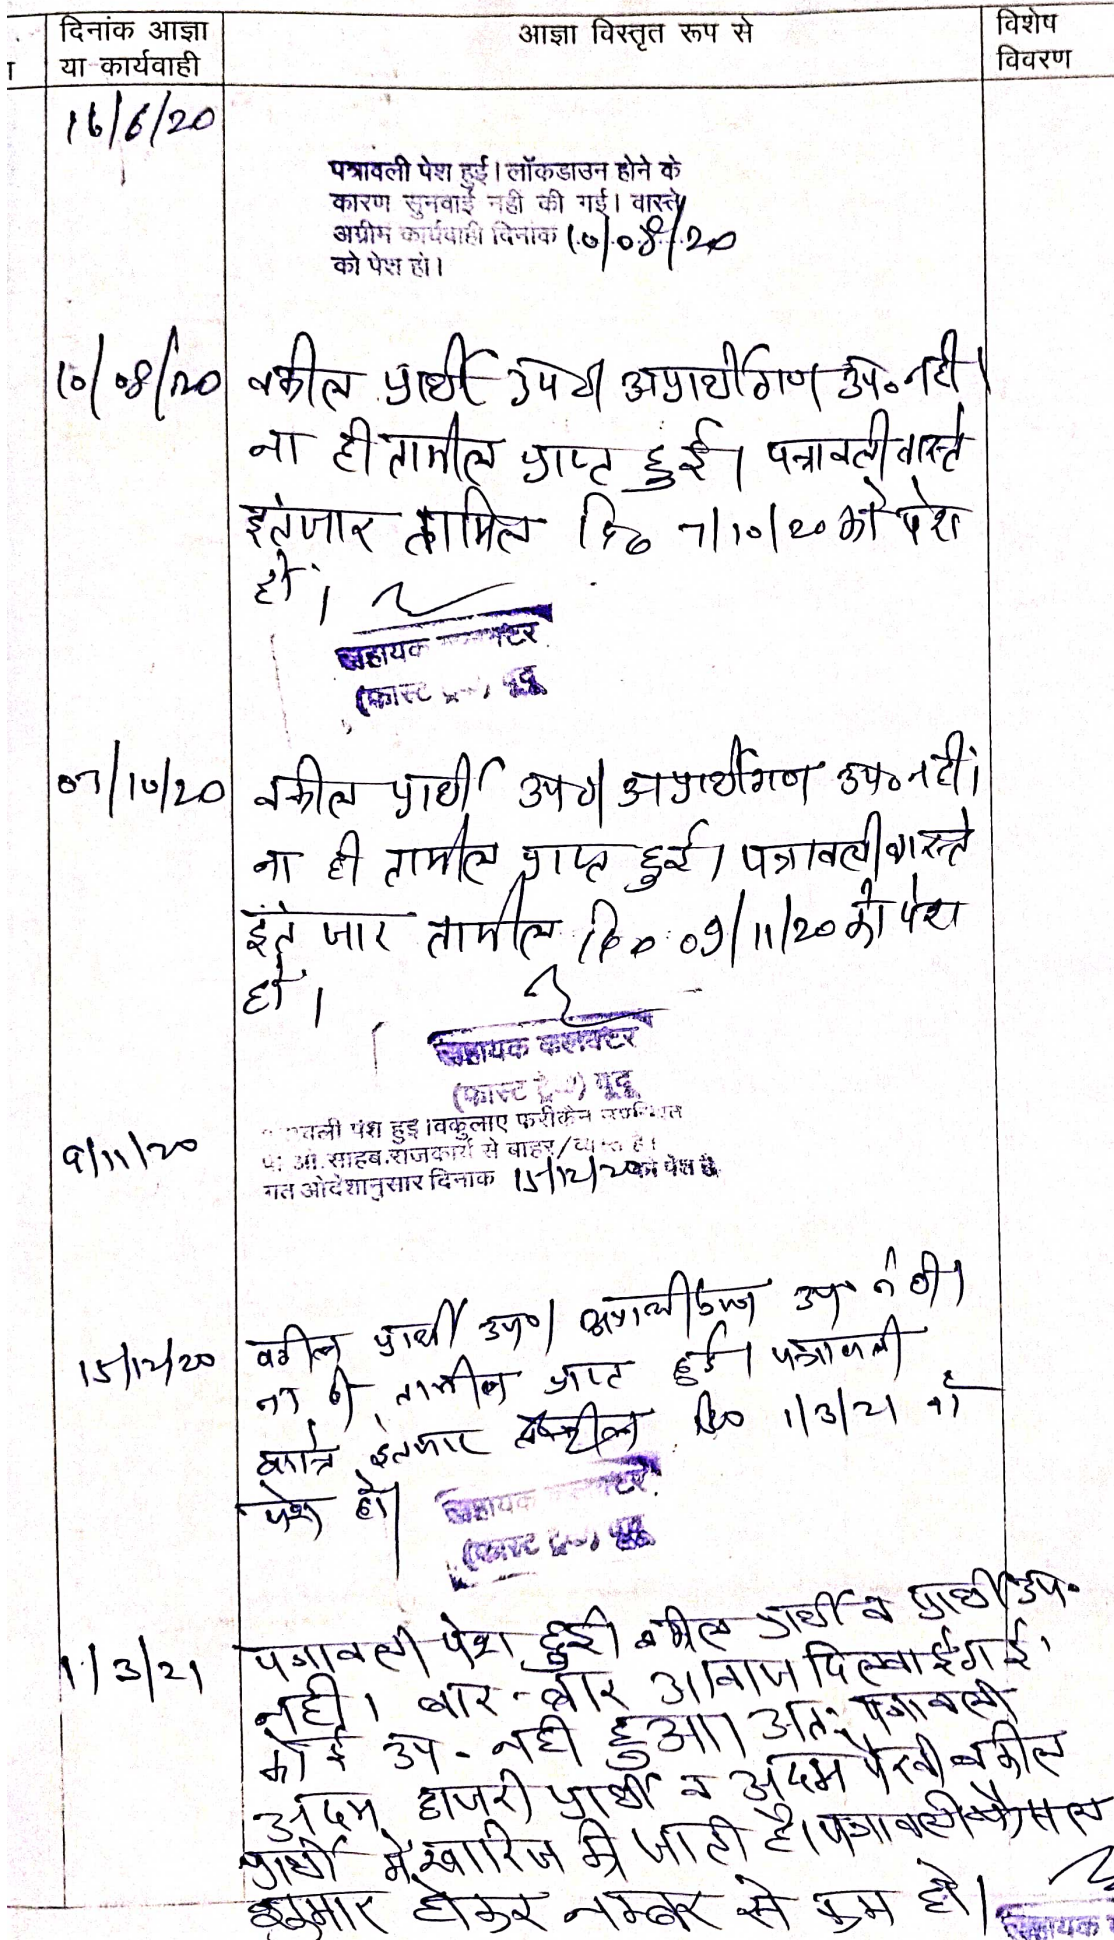 दिनांक आज्ञा
या कार्यवाही
आज्ञा विस्तृत रूप से
विशेष
विवरण
16/6/20
पत्रावली पेश हुई। लॉकडाउन होने के
कारण सुनवाई नहीं की गई। वास्ते
अग्रीम कार्यवाही दिनांक 10/08/20
को पेश हो।
10/08/20 वकील प्रार्थी उप०। अप्रार्थीगण उप० नही।
ना ही तामील प्राप्त हुई। पत्रावली वास्ते
इंतजार तामिल दि० 7/10/20 को पेश
हो।
सहायक कलक्टर
(फास्ट ट्रेक) दूदू
07/10/20 वकील प्रार्थी उप०। अप्रार्थीगण उप० नहीं।
ना ही तामील प्राप्त हुई। पत्रावली वास्ते
इंतजार तामील दि० 09/11/20 को पेश
हो।
सहायक कलक्टर
(फास्ट ट्रेक) दूदू
पत्रावली पेश हुई। वकुलाए फरीकैन उपस्थित
9/11/20 पी. ओ. साहब राजकार्य से बाहर/व्यस्त है।
गत ओदेशानुसार दिनांक 15/12/20 को पेश हो
15/12/20 वकील प्रार्थी उप०। अप्रार्थीगण उप० नही।
ना ही तामील प्राप्त हुई। पत्रावली
वास्ते इंतजार तामील दि० 1/3/21 को
पेश हो।
सहायक कलक्टर
(फास्ट ट्रेक) दूदू
1/3/21 पत्रावली पेश हुई। वकील प्रार्थी व प्रार्थी उप०
नही। बार-बार आवाज दिलवाई गई।
कोई उप- नही हुआ। अतः पत्रावली
अदम हाजरी प्रार्थी व अदम पैरवी वकील
प्रार्थी में खारिज की जाती है। पत्रावली फैसल
शुमार होकर नम्बर से कम हो।
सहायक